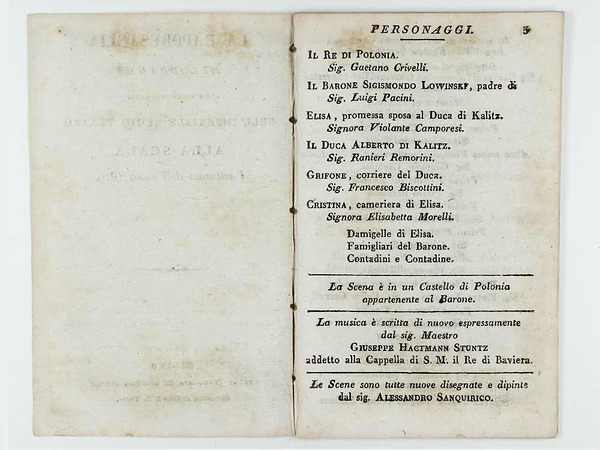 PERSONAGGI. 3
IL RE DI POLONIA.
Sig. Gaetano Crivelli.
IL BARONE SIGISMONDO LOWINSKY, padre di
Sig. Luigi Pacini.
ELISA, promessa sposa al Duca di Kalitz.
Signora Violante Camporesi.
IL DUCA ALBERTO DI KALITZ.
Sig. Ranieri Remorini.
GRIFONE, corriere del Duca.
Sig. Francesco Biscottini.
CRISTINA, cameriera di Elisa.
Signora Elisabetta Morelli.
Damigelle di Elisa.
Famigliari del Barone.
Contadini e Contadine.
La Scena è in un Castello di Polonia
appartenente al Barone.
La musica è scritta di nuovo espressamente
dal sig. Maestro
GIUSEPPE HAETMANN STUNTZ
addetto alla Cappella di S. M. il Re di Baviera.
Le Scene sono tutte nuove disegnate e dipinte
dal sig. ALESSANDRO SANQUIRICO.